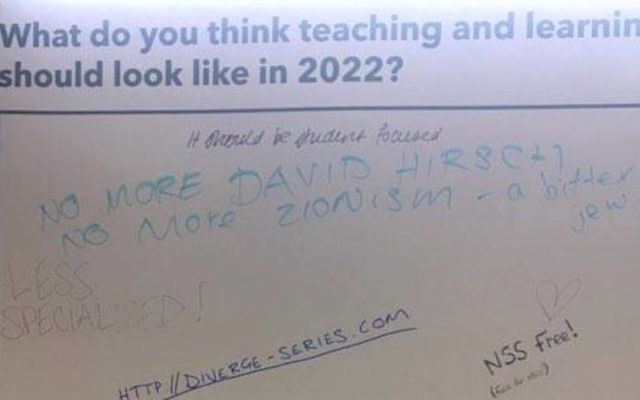 What do you think teaching and learnin
should look like in 2022?
It should be student focused
NO MORE DAVID HIRSCH
NO MORE ZIONISM - a bitter
jew
LESS
SPECIALISED!
HTTP://DIVERGE-SERIES.COM
NSS Free!